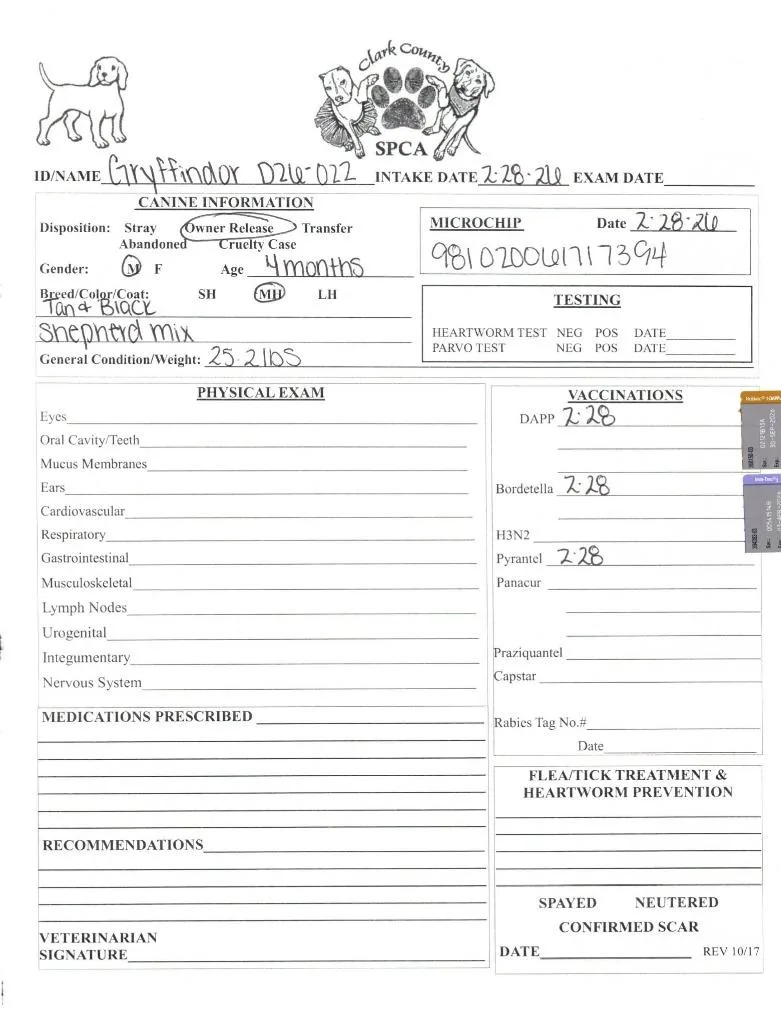 Clark County
SPCA
ID/NAME Gryffindor D26-022 INTAKE DATE 2-28-26 EXAM DATE
CANINE INFORMATION
Disposition: Stray Owner Release Transfer
Abandoned Cruelty Case
Gender: M F Age 4 months
Breed/Color/Coat: SH MH LH
Tan & Black
Shepherd mix
General Condition/Weight: 25.2 lbs
MICROCHIP Date 2-28-26
981020061717394
TESTING
HEARTWORM TEST NEG POS DATE
PARVO TEST NEG POS DATE
PHYSICAL EXAM
Eyes
Oral Cavity/Teeth
Mucus Membranes
Ears
Cardiovascular
Respiratory
Gastrointestinal
Musculoskeletal
Lymph Nodes
Urogenital
Integumentary
Nervous System
MEDICATIONS PRESCRIBED
RECOMMENDATIONS
VETERINARIAN
SIGNATURE
VACCINATIONS
DAPP 2-28
Bordetella 2-28
H3N2
Pyrantel 2-28
Panacur
Praziquantel
Capstar
Rabies Tag No.#
Date
FLEA/TICK TREATMENT &
HEARTWORM PREVENTION
SPAYED NEUTERED
CONFIRMED SCAR
DATE REV 10/17